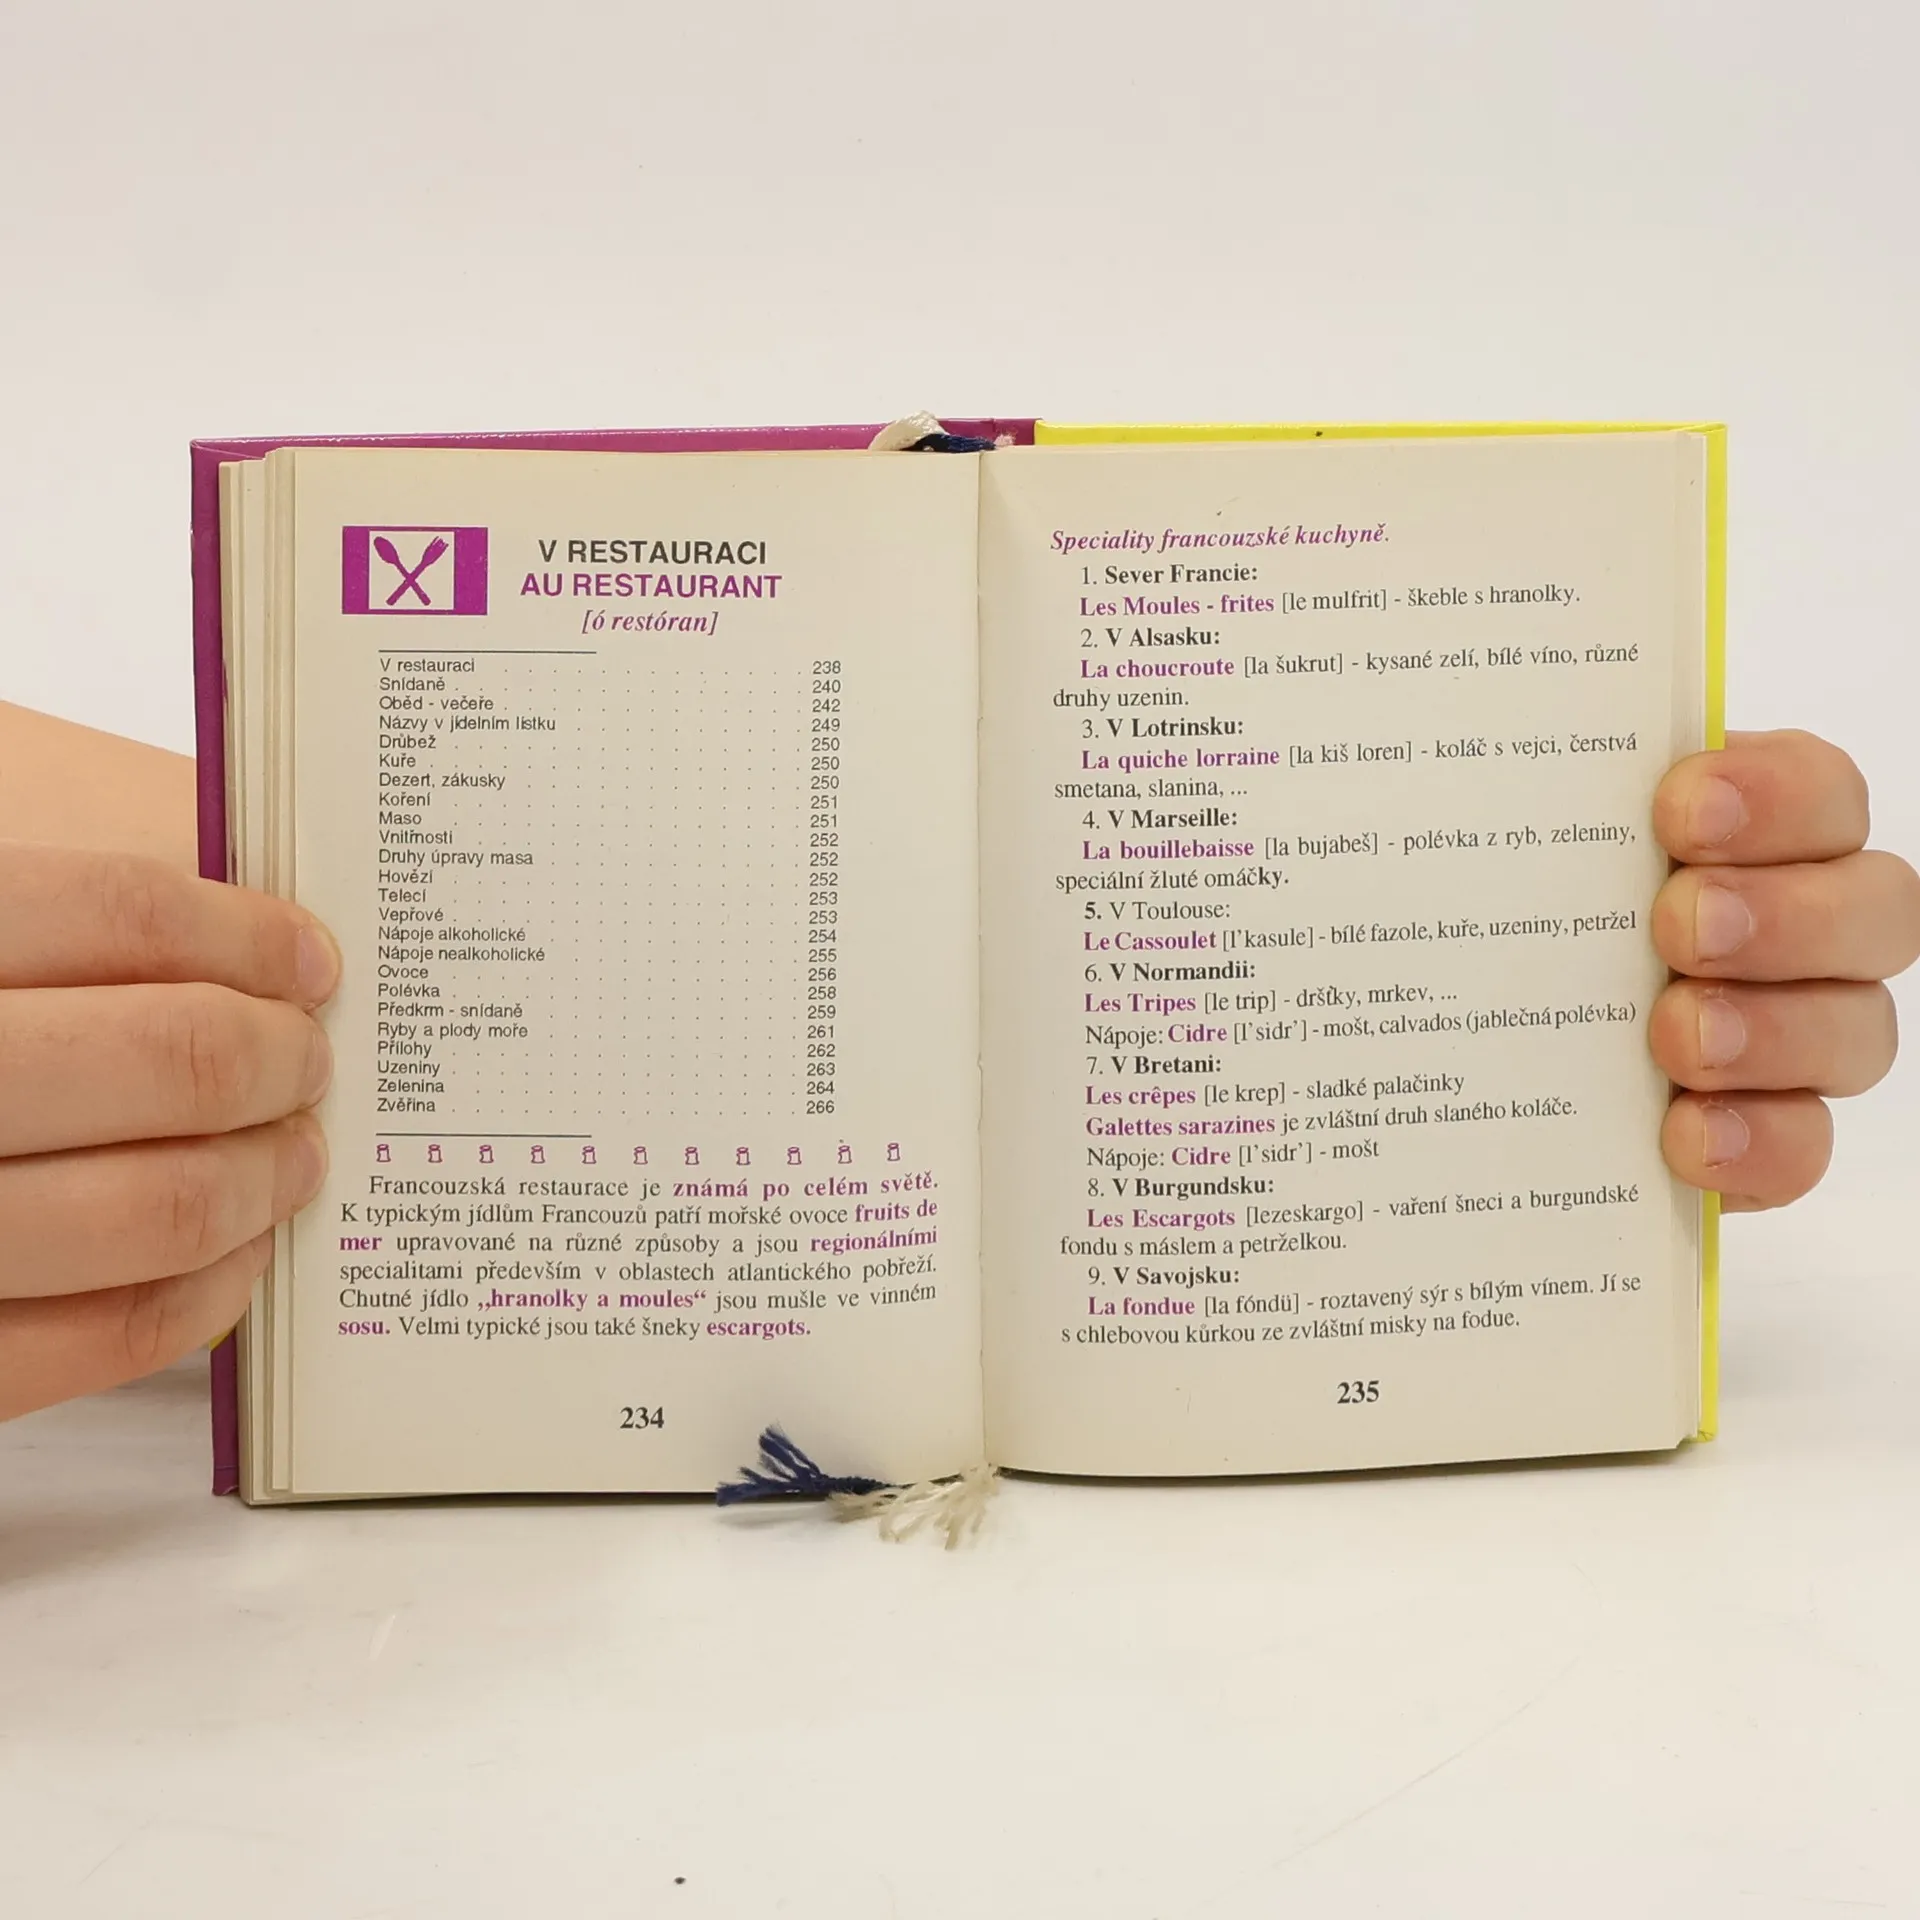 V RESTAURACI
AU RESTAURANT
[ó restóran]
V restauraci . . . . . . . . . . . . . 238
Snídaně . . . . . . . . . . . . . 240
Oběd - večeře . . . . . . . . . . . . . 242
Názvy v jídelním lístku . . . . . . . . . . 249
Drůbež . . . . . . . . . . . . . 250
Kuře . . . . . . . . . . . . . 250
Dezert, zákusky . . . . . . . . . . . . 250
Koření . . . . . . . . . . . . . 251
Maso . . . . . . . . . . . . . 251
Vnitřnosti . . . . . . . . . . . . . 252
Druhy úpravy masa . . . . . . . . . . . 252
Hovězí . . . . . . . . . . . . . 252
Telecí . . . . . . . . . . . . . 253
Vepřové . . . . . . . . . . . . . 253
Nápoje alkoholické . . . . . . . . . . . 254
Nápoje nealkoholické . . . . . . . . . . 255
Ovoce . . . . . . . . . . . . . 256
Polévka . . . . . . . . . . . . . 258
Předkrm - snídaně . . . . . . . . . . . 259
Ryby a plody moře . . . . . . . . . . . 261
Přílohy . . . . . . . . . . . . . 262
Uzeniny . . . . . . . . . . . . . 263
Zelenina . . . . . . . . . . . . . 264
Zvěřina . . . . . . . . . . . . . 266
Francouzská restaurace je známá po celém světě.
K typickým jídlům Francouzů patří mořské ovoce fruits de
mer upravované na různé způsoby a jsou regionálními
specialitami především v oblastech atlantického pobřeží.
Chutné jídlo „hranolky a moules“ jsou mušle ve vinném
sosu. Velmi typické jsou také šneky escargots.
234
Speciality francouzské kuchyně.
1. Sever Francie:
Les Moules - frites [le mulfrit] - škeble s hranolky.
2. V Alsasku:
La choucroute [la šukrut] - kysané zelí, bílé víno, různé
druhy uzenin.
3. V Lotrinsku:
La quiche lorraine [la kiš loren] - koláč s vejci, čerstvá
smetana, slanina, ...
4. V Marseille:
La bouillebaisse [la bujabeš] - polévka z ryb, zeleniny,
speciální žluté omáčky.
5. V Toulouse:
Le Cassoulet [l’kasule] - bílé fazole, kuře, uzeniny, petržel
6. V Normandii:
Les Tripes [le trip] - dršťky, mrkev, ...
Nápoje: Cidre [l’sidr’] - mošt, calvados (jablečná polévka)
7. V Bretani:
Les crêpes [le krep] - sladké palačinky
Galettes sarazines je zvláštní druh slaného koláče.
Nápoje: Cidre [l’sidr’] - mošt
8. V Burgundsku:
Les Escargots [lezeskargo] - vaření šneci a burgundské
fondu s máslem a petrželkou.
9. V Savojsku:
La fondue [la fóndü] - roztavený sýr s bílým vínem. Jí se
s chlebovou kůrkou ze zvláštní misky na fodue.
235